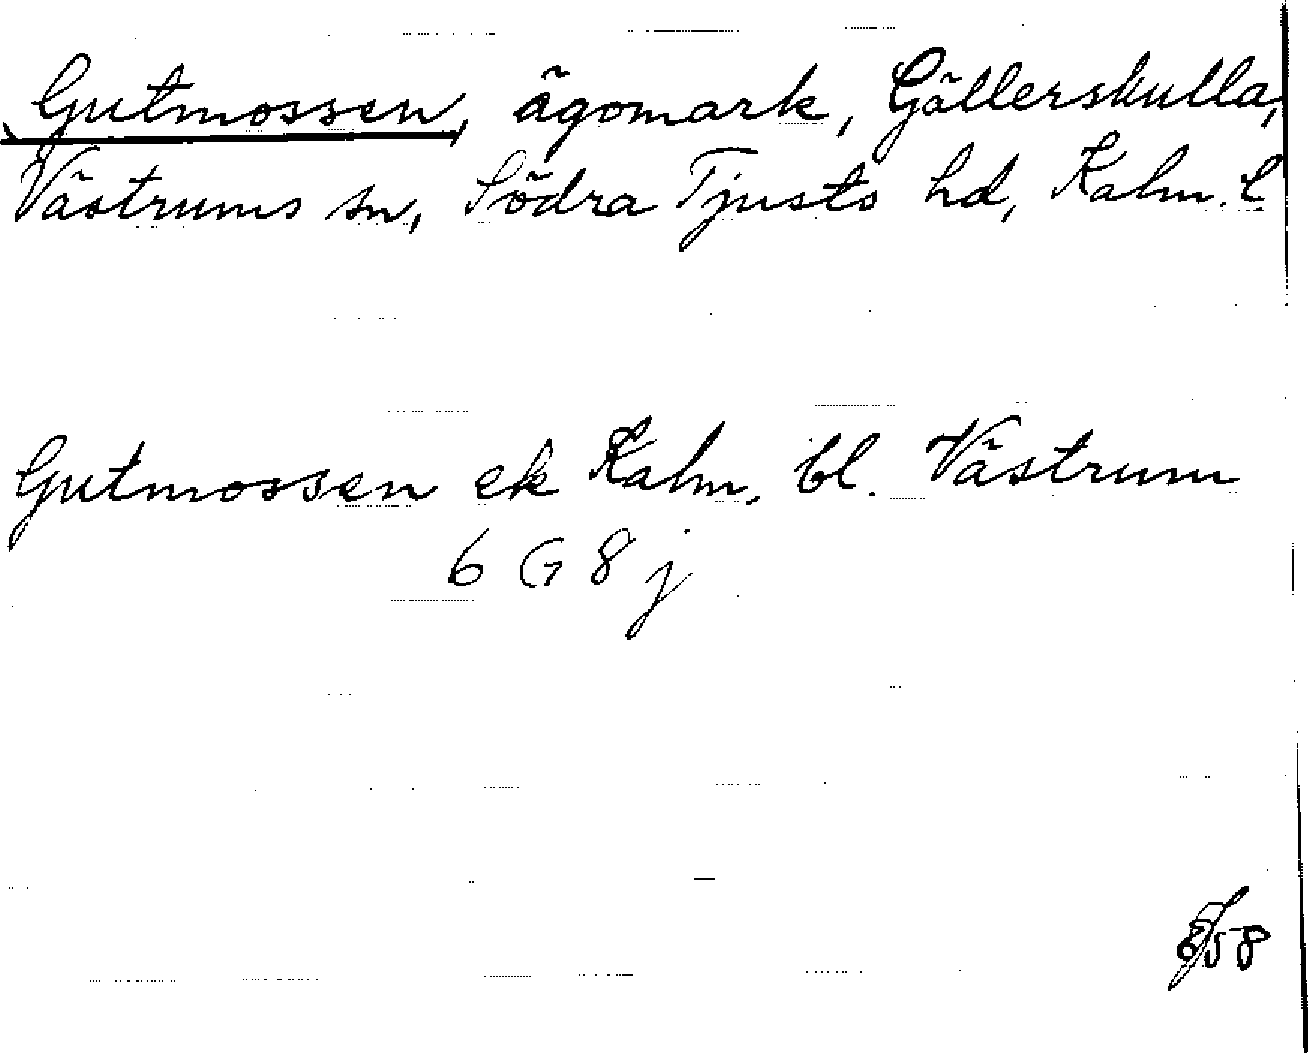 Gutmossen, ägomark, Gällerskulla,
Västrums sn, Södra Tjusts hd, Kalm. l
Gutmossen ek Kalm. bl. Västrum
6 G 8 j